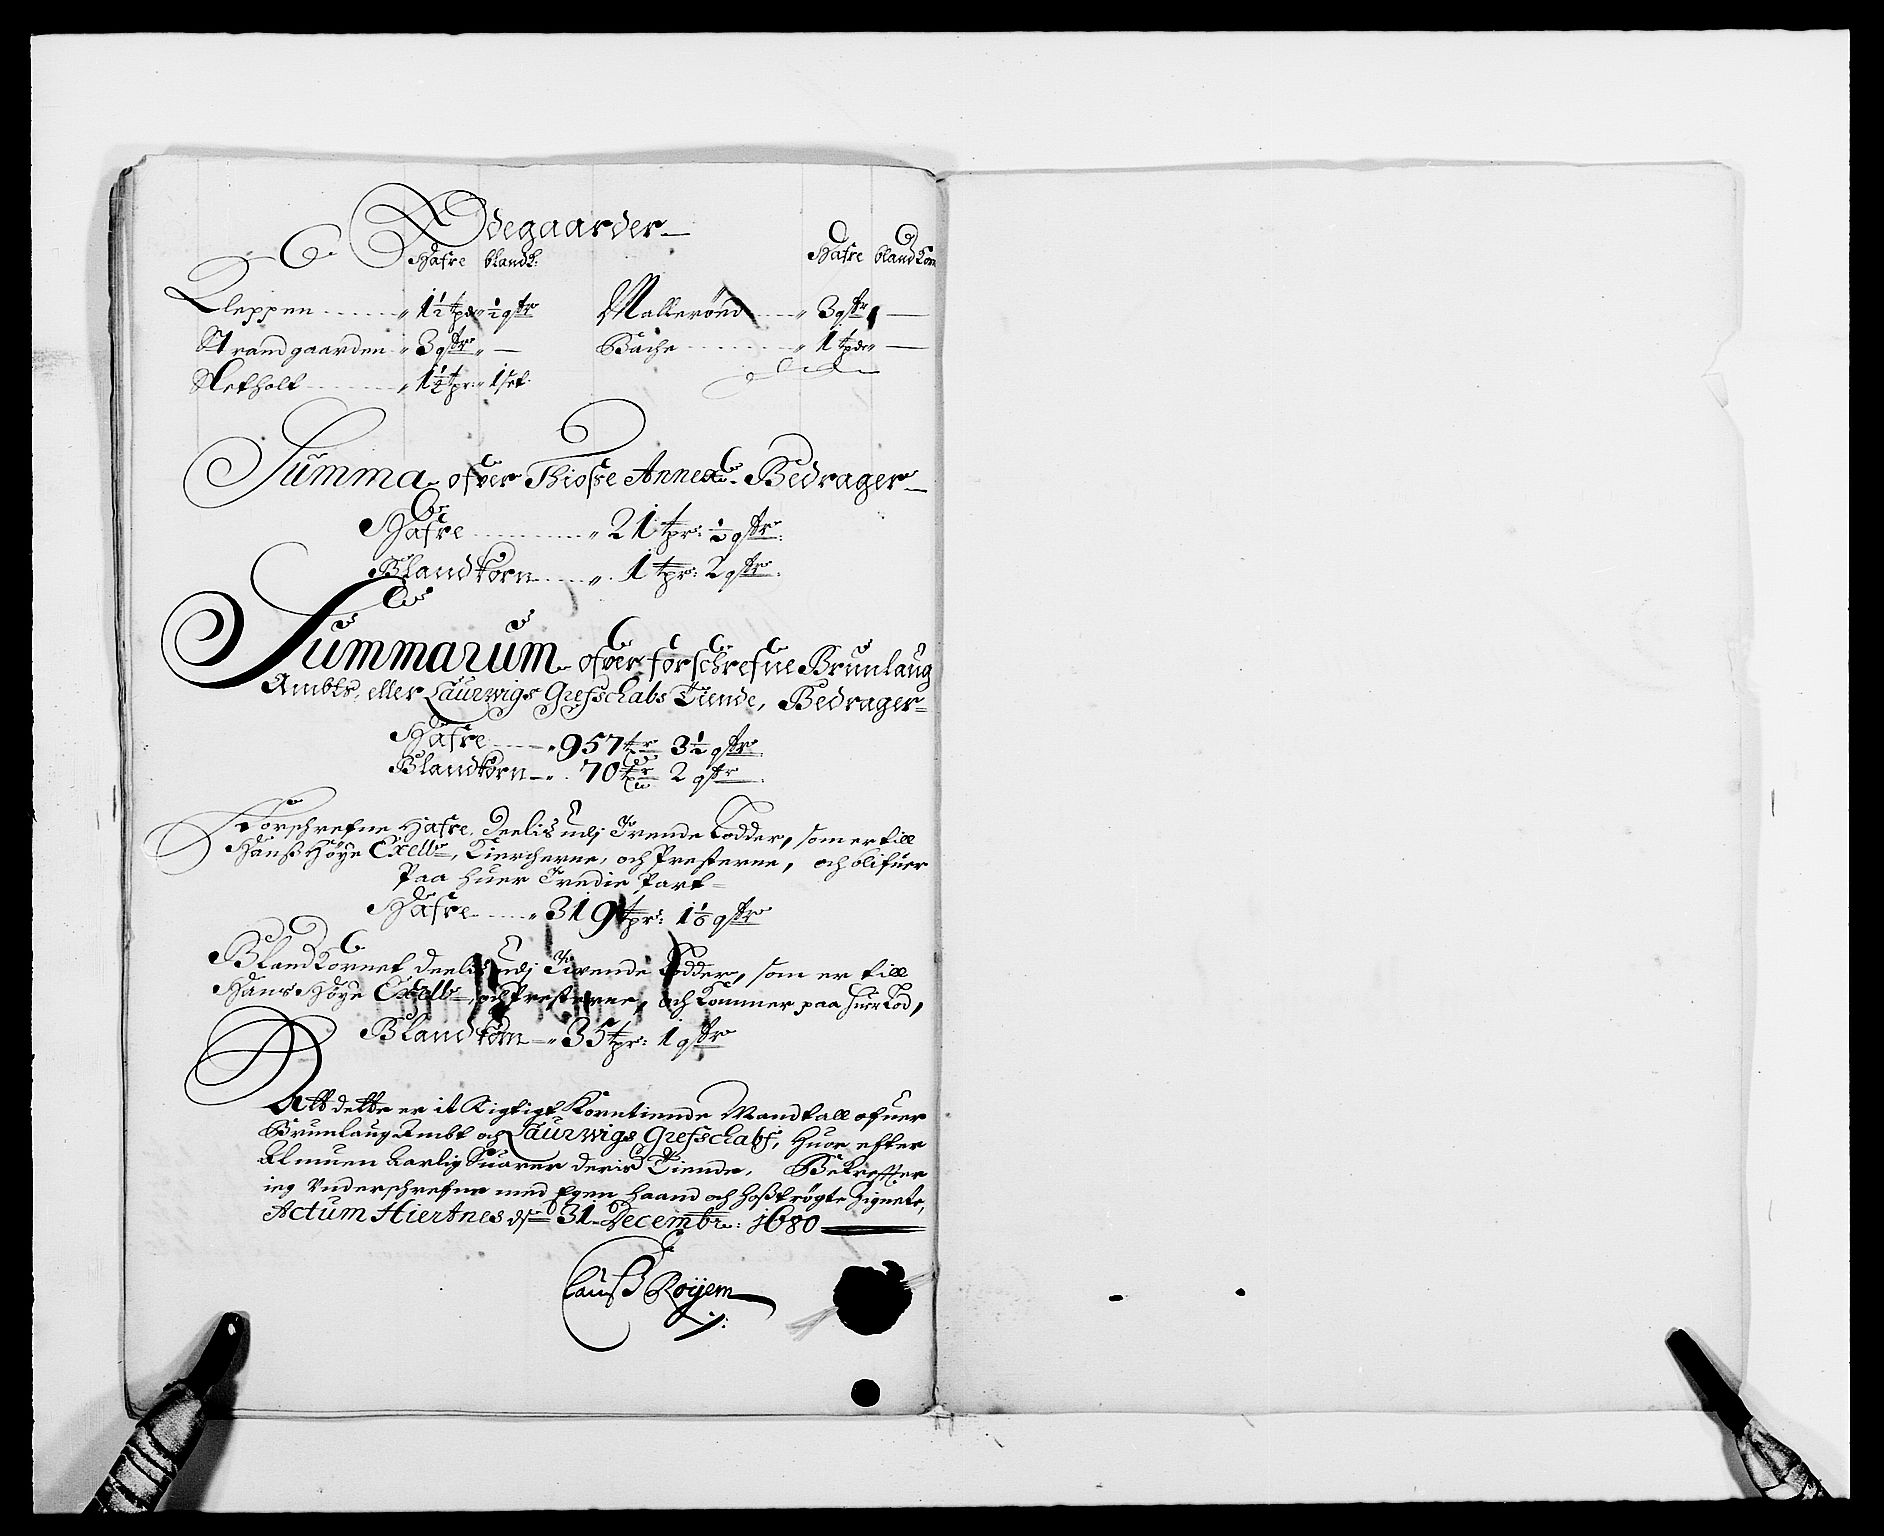 Ødegaarder
Hafre blandk: Hafre blandkorn
Kleppen ...... „ 1½ tpdr „ ½ qtr Mallerönd .... „ 3 qtr „ —
Strandgaarden „ 3 qtr „ — Bache ........ „ 1 tpdr „ —
Nefholt ....... „ 1¼ tpr: „ 1 set.
Summa ofver Thiose Annex Bedrager
Hafre ......... „ 21 tpr: ½ qtr:
Blandkorn .... „ 1 tpr: 2 qtr.
Summarum ofver forschrefne Brunlaug
Ambts, eller Laurwigs Grefschabs Tiende, Bedrager
Hafre ..... „ 957 tr 3½ qtr
Blandkorn „ 70 tr 2 qtr
Forschrefne Hafre, Deelis udj Trende Lodder, som er till
Hanß Høye Excell:, Kiercherne, och Presterne, och blifuer
Paa huer Tredie Part
Hafre ..... „ 319 tpr: 1⅙ qtr
Blandkornet deelis udj Tvende Lodder, som er till
Hans Høye Excell:, och Presterne, och Kommer paa huer Lod,
Blandkorn „ 35 tpr: 1 qtr
Att dette er it Rigtigt Korntiende Mandtall ofuer
Brunlaug Ambt och Laurwigs Grefschabf, Huor efter
Almuen Aarlig Suarer deris Tiende, Bekrefter
ieg Underschrefne med Egen haand och hoßtrögte Zignete,
Actum Hiertnes dn 31 Decembr: 1680
Clauß Röyem